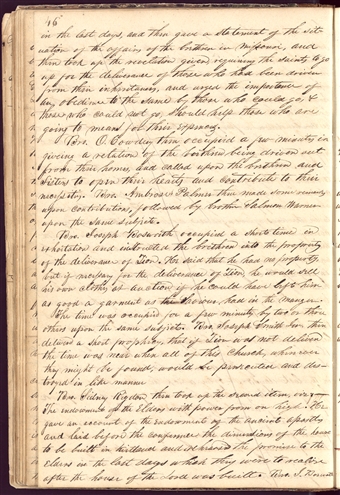 46
in the last days, and then gave a statement of the sit-
uation of the affairs of the brethren in Missouri, and
then took up the revelation given requiring the saints to go
up for the deliverance of those who had been driven
from their inheritances, and urged the importance of
obedience to the same by those who could go, &
those who could not go, should help those who are
going to means for their expenses.
Bro. O. Cowdery then occupied a few minutes in
giving a relation of the brethren being driven out
from their homes, and called upon the brethren and
sisters to open their hearts and contribute to their
necessities. Bro. Ambrose Palmer then made some remarks
upon contributions, followed by brother Salmon Warner
upon the same subject.
Bro. Joseph Bosworth occupied a short time in
exhortation and entreated the brethren into the propriety
of the deliverance of Zion. He said that he had no property,
but if necessary for the deliverance of Zion he would sell
his own clothes at auction, if he could have left him
as good a garment as the Saviour had in the manger.
The time was occupied for a few minutes by two or three
others upon the same subject. Bro. Joseph Smith Jun. then
delivered a short prophecy, that if Zion was not delivered
the time was near when all of this Church, wherever
they might be found, would be persecuted and des-
troyed in like manner
Bro. Sidney Rigdon then took up the second item, viz:—
The endowment of the Elders with power from on high. He
gave an account of the endowment of the ancient apostles
and laid before the conference the dimensions of the house
to be built in Kirtland and rehearsed the promise to the
elders in the last days which they were to realize
after the house of the Lord was built. Bro.